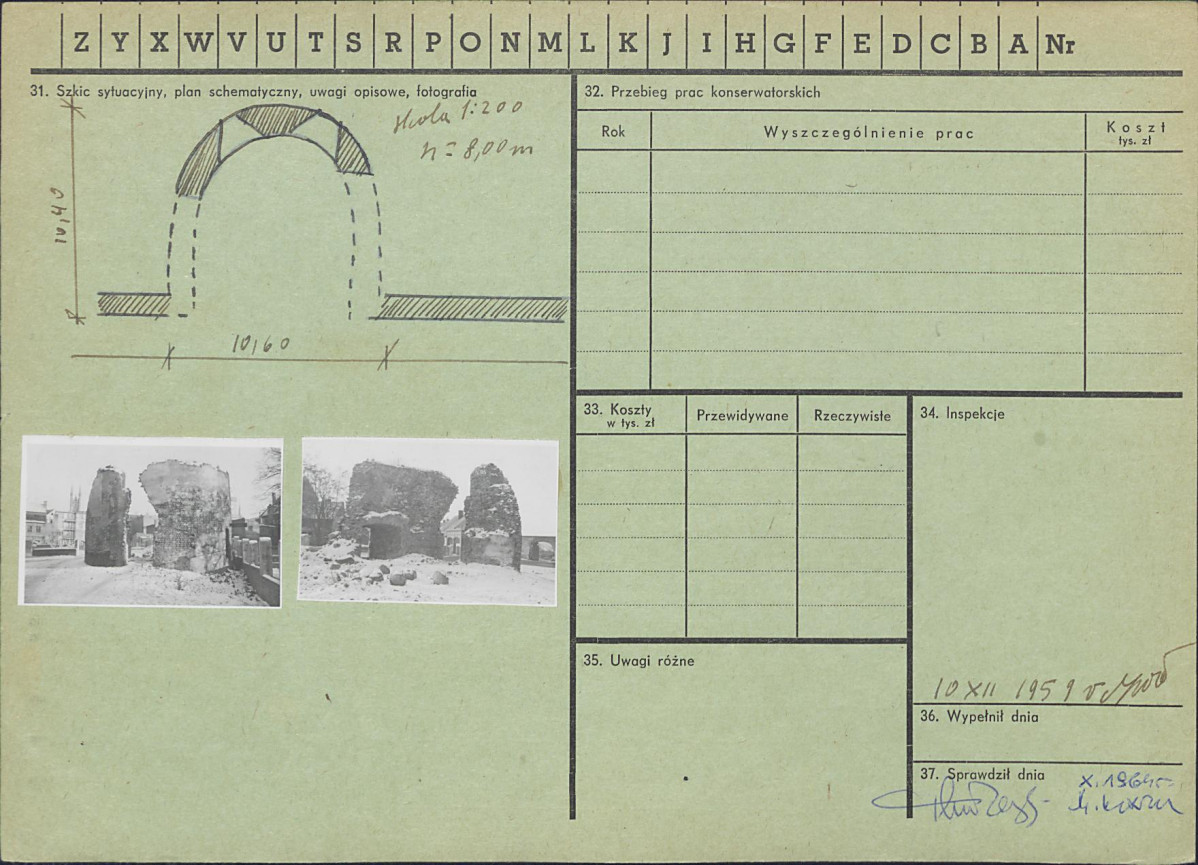 Z Y X W V U T S R P O N M L K J I H G F E D C B A Nr
31. Szkic sytuacyjny, plan schematyczny, uwagi opisowe, fotografia
skala 1:200
h = 8,00 m
10,40
10,60
32. Przebieg prac konserwatorskich
Rok
Wyszczególnienie prac
Koszt
tys. zł
33. Koszty
w tys. zł
Przewidywane
Rzeczywiste
34. Inspekcje
35. Uwagi różne
10 XII 1959
36. Wypełnił dnia
37. Sprawdził dnia